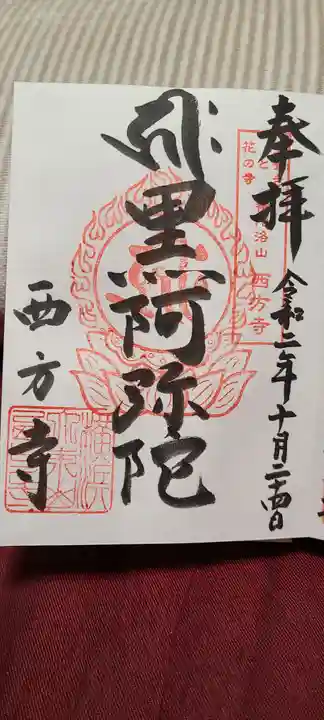 奉拝
令和二年十月二十四日
花の寺
洛山
西方寺
黒阿弥陀
西方寺
横浜